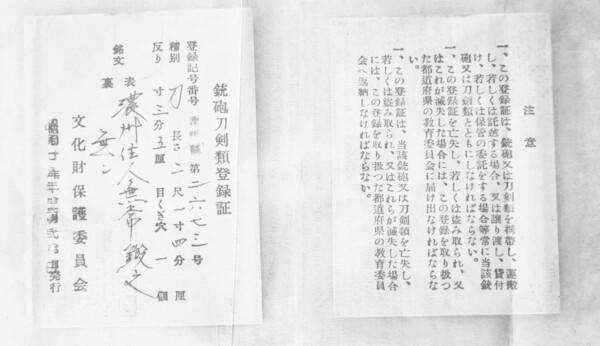 銃砲刀剣類登録証
登録記号番号 第二六七三号
種別 刀 長さ 二尺一寸四分 厘
反り 寸三分五厘 目くぎ穴 一個
銘文 表 濃州住人兼 鍛之
裏
文化財保護委員会
昭和 年 月 日発行
注意
一、この登録証は、銃砲又は刀剣類を携帯し、運搬
し、若しくは託送する場合、又は譲り渡し、貸付
け、若しくは保管の委託をする場合等常に当該銃
砲又は刀剣類とともにしなければならない。
一、この登録証を亡失し、若しくは盗み取られ、又
はこれが滅失した場合には、この登録を取り扱つ
た都道府県の教育委員会に届け出なければならな
い。
一、この登録証は、当該銃砲又は刀剣類を亡失し、
若しくは盗み取られ、又はこれらが滅失した場合
には、この登録を取り扱つた都道府県の教育委員
会へ返納しなければならない。